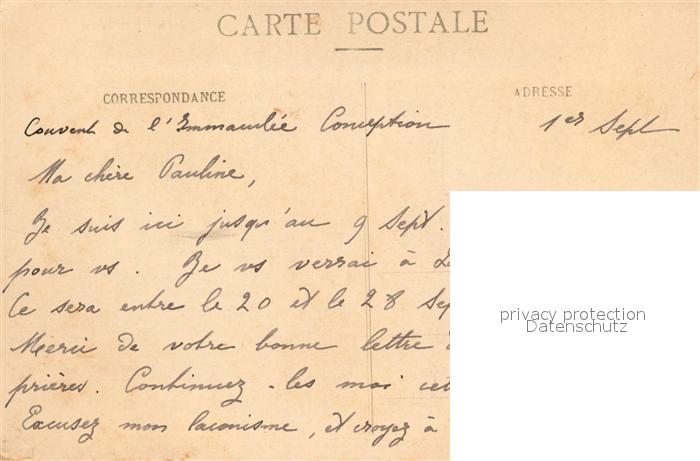 CARTE POSTALE
CORRESPONDANCE
ADRESSE
Couvent de l'Immaculée Conception 1er Sept
Ma chère Pauline,
Je suis ici jusqu'au 9 Sept.
pour vs. Je vs verrai à
Ce sera entre le 20 et le 28 Sep
Merci de votre bonne lettre
prières. Continuez-les moi cet
Excusez mon laconisme, et croyez à
privacy protection
Datenschutz